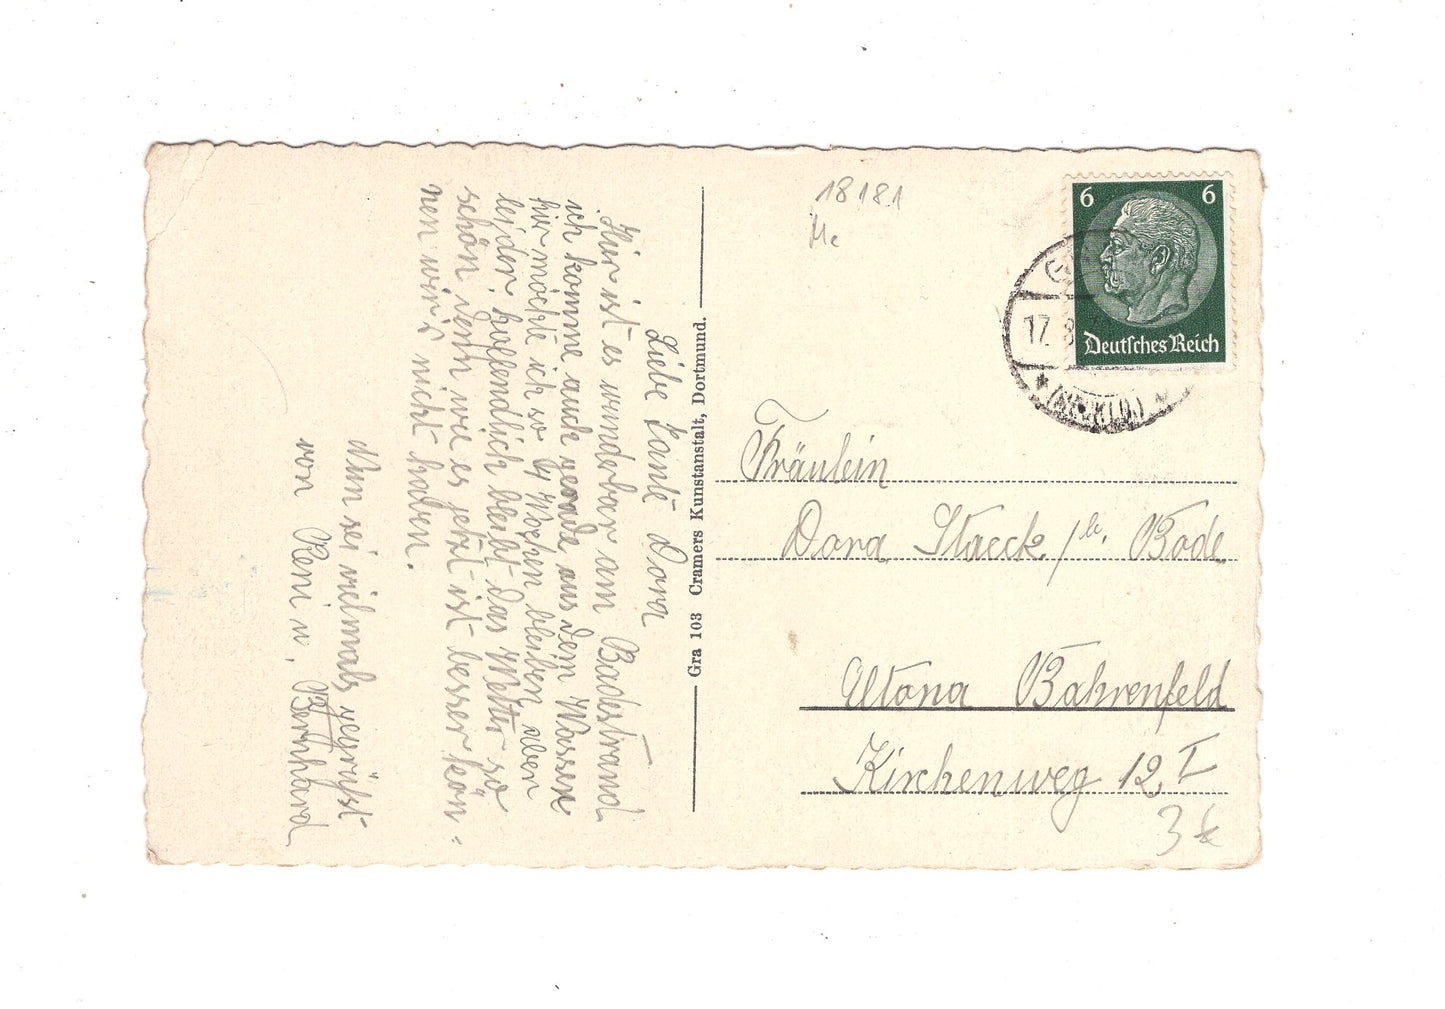 Liebe Tante Dora
Hier ist es wunderbar am Badestrand
ich komme auch gerade aus dem Wasser
hier möchte ich so 4 Wochen bleiben aber
leider. hoffendlich bleibt das Wetter so
schön denn wie es jetzt ist besser kön-
nen wir's nicht haben.
Nun sei vielmals gegrüßt
von Reni u. Bernhard
Gra 103 Cramers Kunstanstalt, Dortmund.
18181
Me
6 6
Deutsches Reich
17. 8
(MECKLB.)
Fräulein
Dora Staeck / b. Bode
Altona Bahrenfeld
Kirchenweg 12 I
3